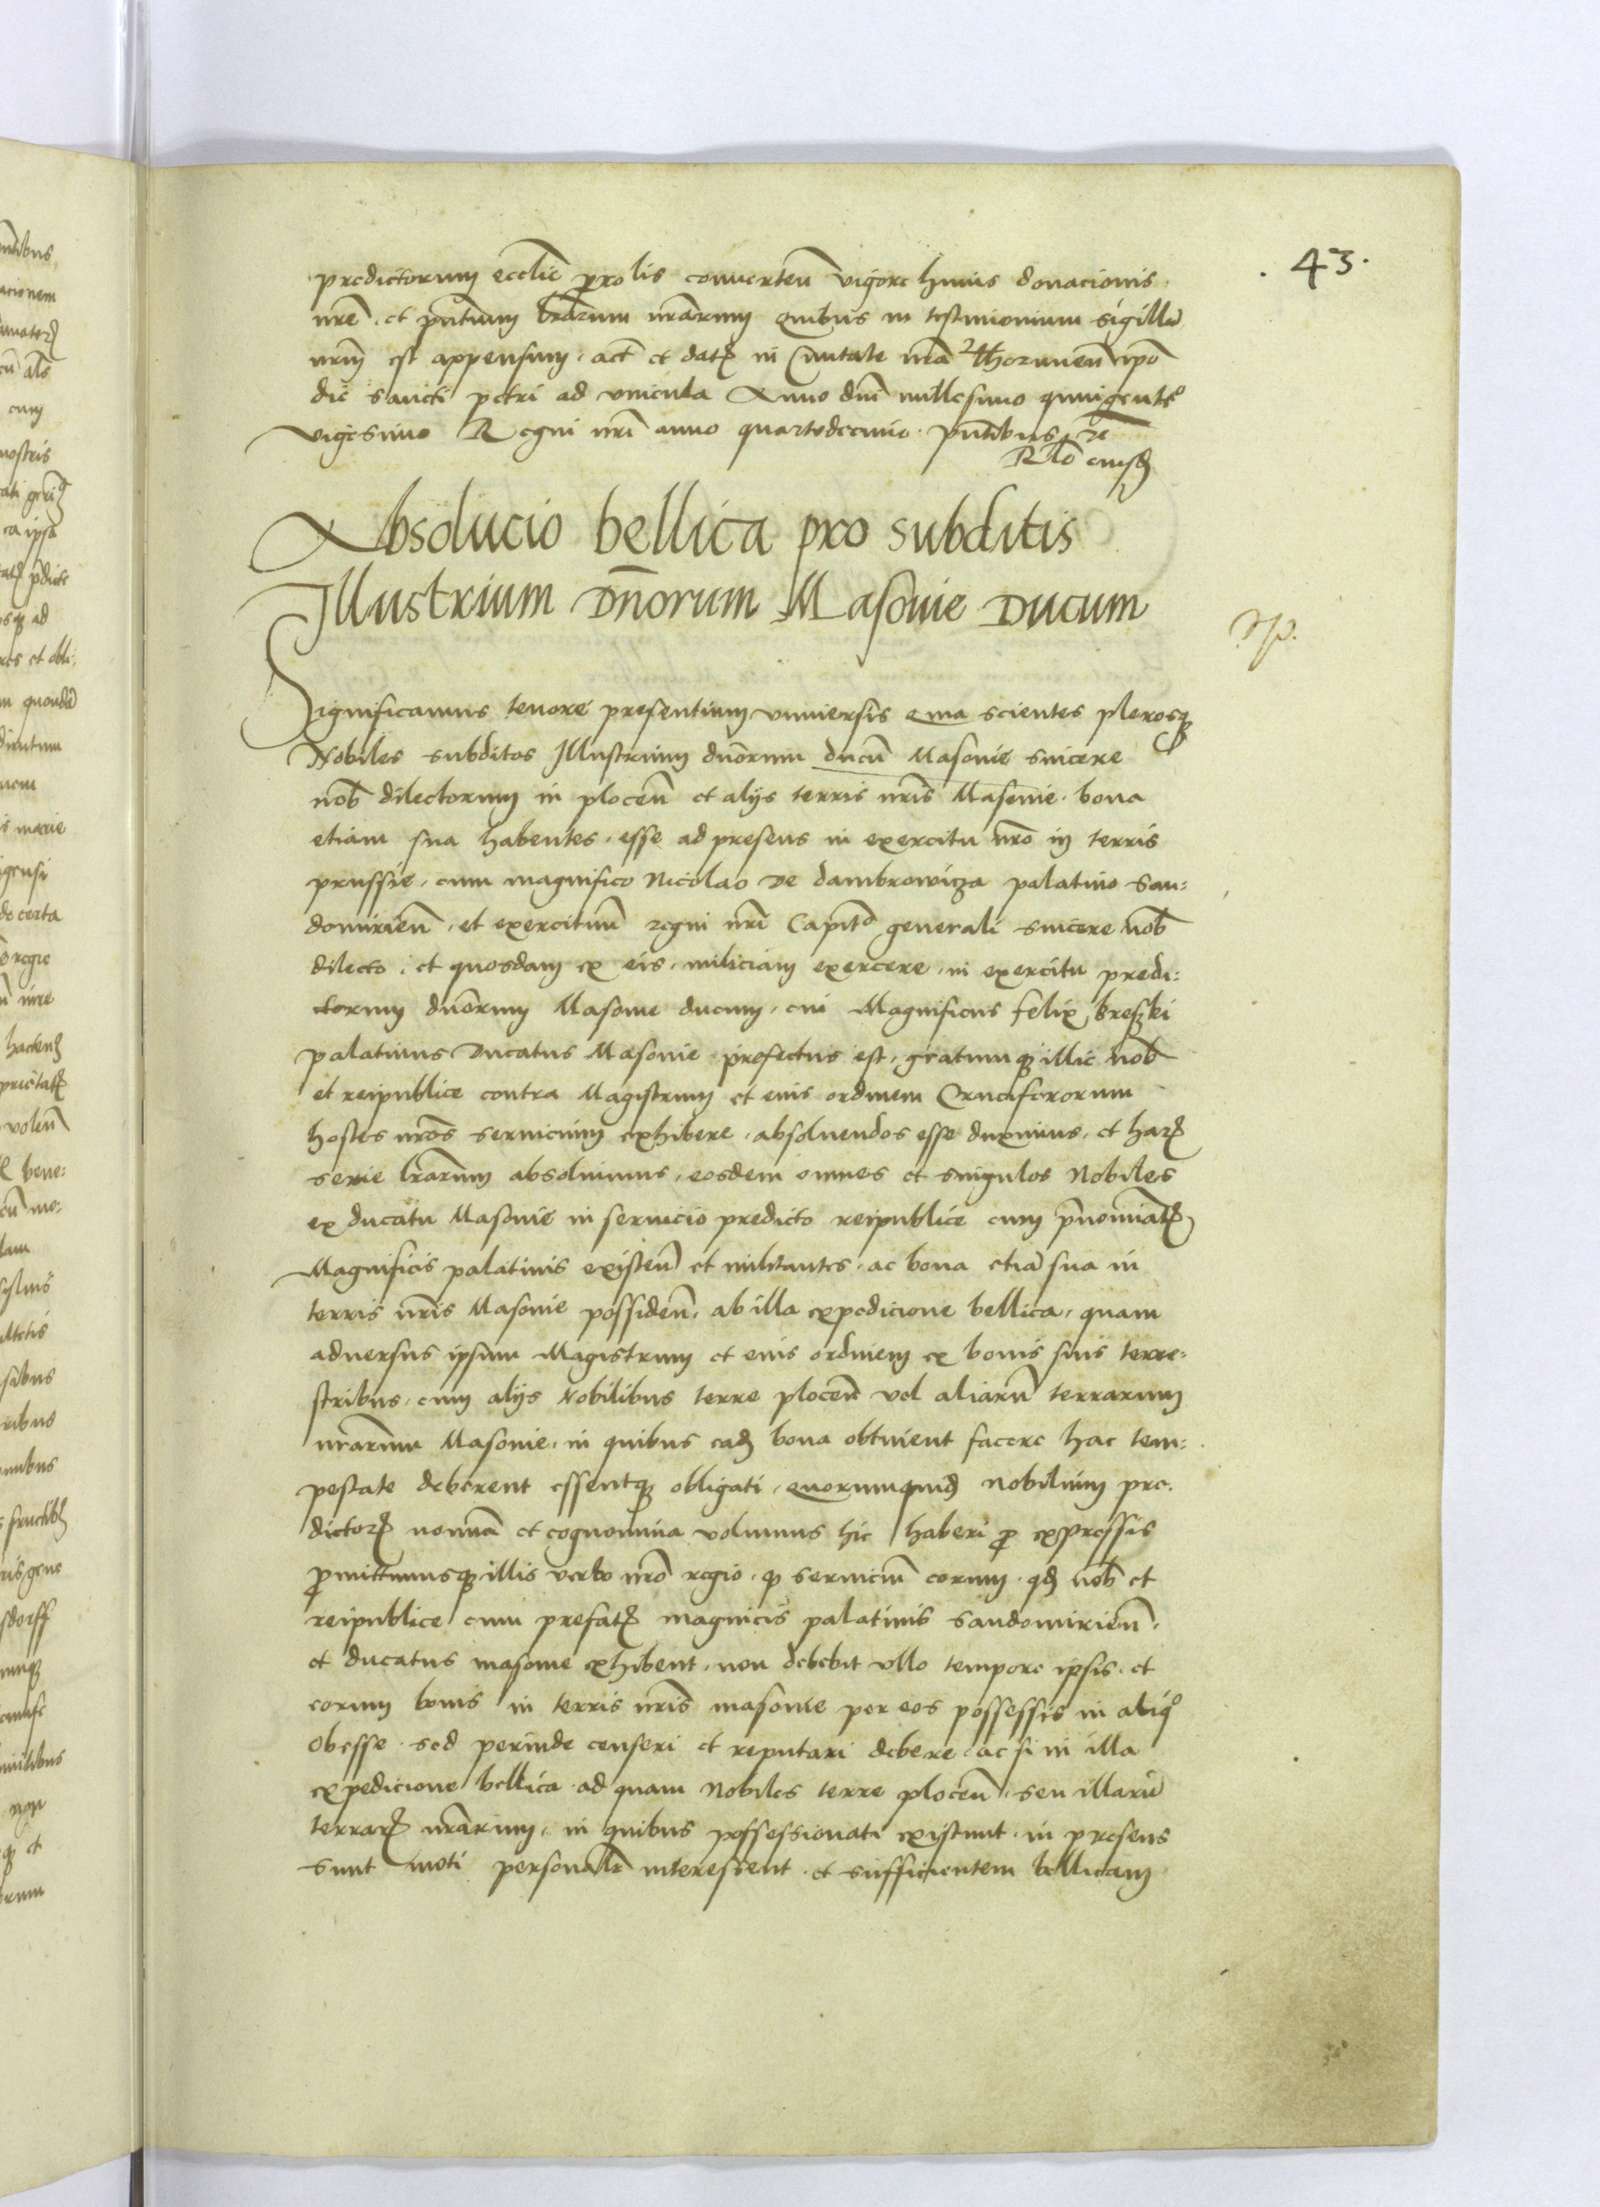 43.
predictorum eccl̄ie p̄rolis conuerten̄ vigore huius donacionis
nr̄e et pn̄tium lr̄arum nr̄arum quibus in testimonium sigillū
nrm̄ est appensum. act̄ et dat̄ in Ciuitate nr̄a Thorunen̄ ipō
die sancti petri ad vincula Anno dnī millesimo quingentᵒ
vigesimo Regni nrī anno quartodecimo. pn̄tibus
Rlō eiusd̄
Absolucio bellica pro subditis
Illustrium Dn̄orum Masouie Ducum
Significamus tenore presentium vniuersis quia scientes plerosqꝫ
Nobiles subditos Illustrium dn̄orum ducū Masouie sincere
nob̄ dilectorum in plocen̄ et alijs terris nrīs Masouie. bona
etiam sua habentes. esse ad presens in exercitu nrō in terris
prussie. cum magnifico Nicolao de dambrowicza palatino san=
domirien̄. et exercituū regni nrī Capitᵒ generali sincere nob̄
dilecto. et quosdam ex eis. miliciam exercere. in exercitu predi=
ctorum dn̄orum Masouie ducum. cui Magnificus felix breszki
palatinus Ducatus Masouie prefectus est. gratumqꝫ illic nob̄
et reipublice contra Magistrum et eius ordinem Cruciferorum
hostes nrōs seruicium exhibere. absoluendos esse duximus. et harꝫ
serie lr̄arum absoluimus. eosdem omnes et singulos Nobiles
ex ducatu Masouie in seruicio predicto reipublice cum pn̄omīatꝫ
Magnificis palatinis existen̄ et militantes. ac bona etiā sua in
terris nrīs Masouie possiden̄. ab illa expedicione bellica. quam
aduersus ipsum Magistrum et eius ordinem ex bonis suis terre=
stribus. cum alijs Nobilibus terre plocen̄ vel aliarū terrarum
nr̄arum Masouie. in quibus eadꝫ bona obtinent facere hac tem=
pestate deberent essentqꝫ obligati. quorumquidꝫ nobilium pre=
dictorꝫ nomīa et cognomina volumus hic haberi ꝓ expressis
ꝓmittimusqꝫ illis verbo nrō regio. ꝙ seruiciū eorum. qdꝫ nob̄ et
reipublice cum prefatꝫ magnicis palatinis sandomirien̄.
et ducatus masouie exhibent. non debebit vllo tempore ipsis. et
eorum bonis in terris nrīs masouie per eos possessis in aliqᵒ
obesse. sed perinde censeri et reputari debere. ac si in illa
expedicione bellica. ad quam Nobiles terre plocen̄. seu illarū
terrarꝫ nr̄arum. in quibus possessionati existunt. in presens
sunt moti personalr̄ interessent. et sufficientem bellicam